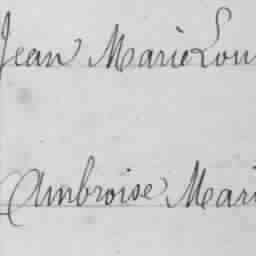 Jean Marie Lou
Ambroise Mari